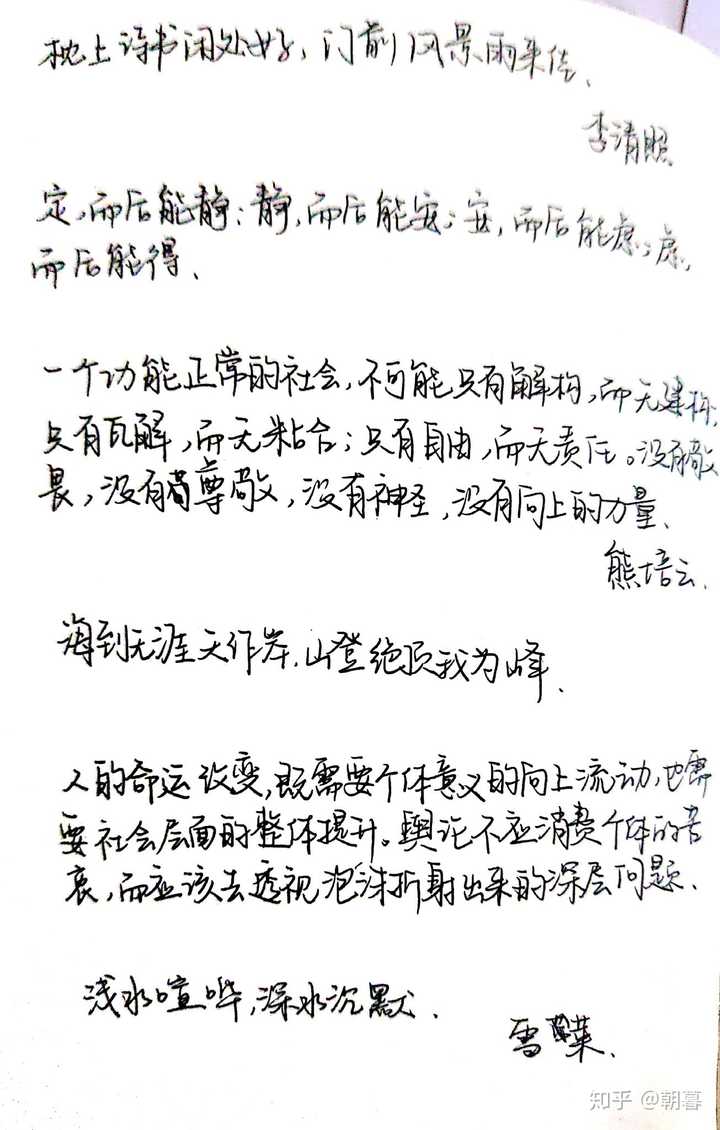 枕上诗书闲处好,门前风景雨来佳、
李清照
定,而后能静;静,而后能安;安,而后能虑;虑,
而后能得、
一个功能正常的社会,不可能只有解构,而无建构,
只有瓦解,而无粘合;只有自由,而无责任。没有敬
畏,没有尊敬,没有神圣,没有向上的力量、
熊培云.
海到无涯天作岸,山登绝顶我为峰、
人的命运改变,既需要个体意义的向上流动,也需
要社会层面的整体提升。舆论不应消费个体的苦
衷,而应该去透视泡沫折射出来的深层问题、
浅水喧哗,深水沉默.
雪莱.
知乎 @朝暮